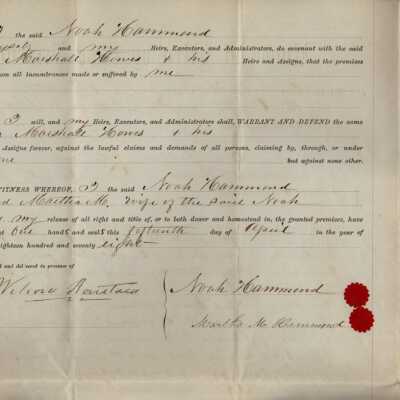 I the said Noah Hammond
and my Heirs, Executors, and Administrators, do covenant with the said
Marshall Howes & his Heirs and Assigns, that the premises
om all incumbrances made or suffered by me
I will, and my Heirs, Executors, and Administrators shall, WARRANT AND DEFEND the same
Marshall Howes & his
d Assigns forever, against the lawful claims and demands of all persons, claiming by, through, or under
me but against none other.
ITNESS WHEREOF, I the said Noah Hammond
d Martha M. Wife of the said Noah
my release of all right and title of, or to both dower and homestead in, the granted premises, have
set our hands and seals this fifteenth day of April in the year of
ighteen hundred and seventy eight
d and delivered in presence of
Noah Hammond
Martha M Hammond